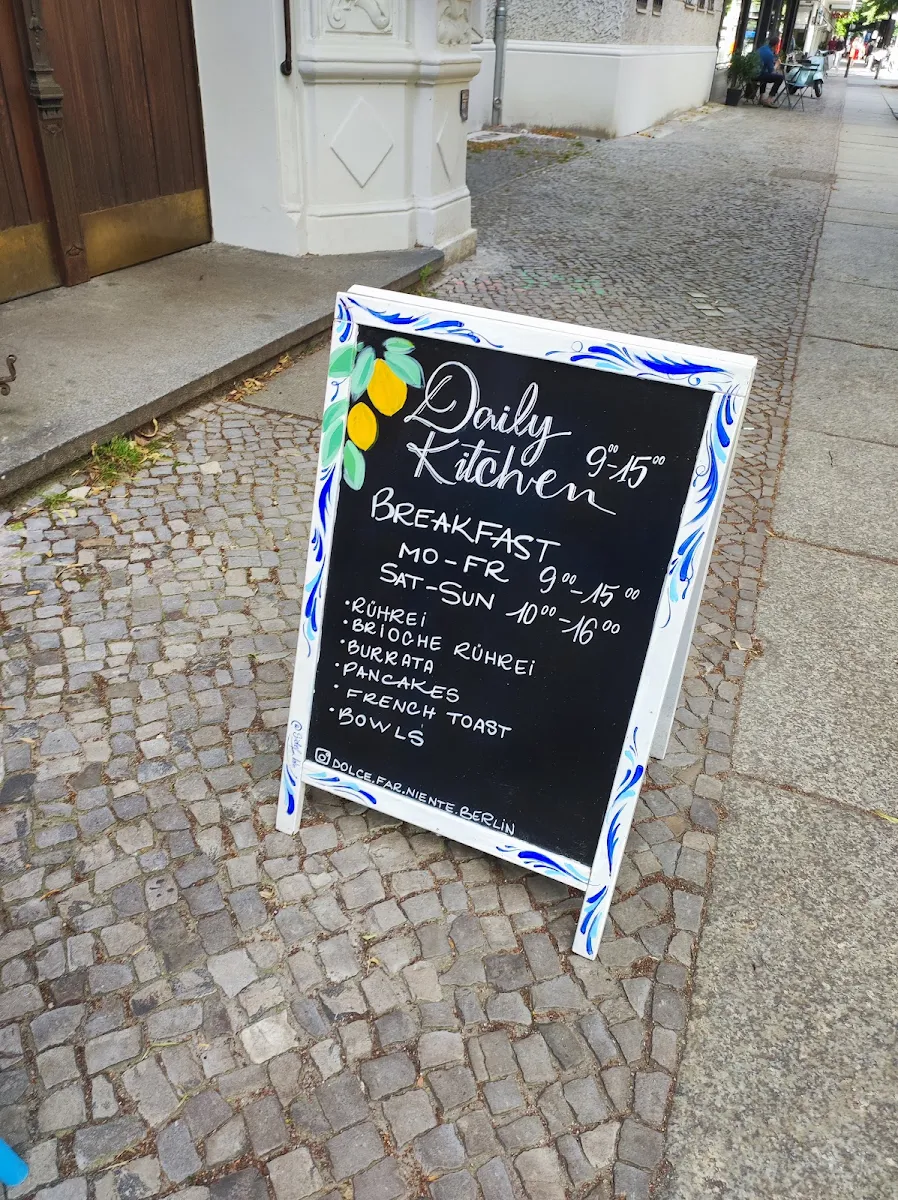 Daily
Kitchen 9⁰⁰-15⁰⁰
BREAKFAST
MO-FR 9⁰⁰-15⁰⁰
SAT-SUN 10⁰⁰-16⁰⁰
•RÜHREI
•BRIOCHE RÜHREI
•BURRATA
•PANCAKES
•FRENCH TOAST
•BOWLS
DOLCE.FAR.NIENTE.BERLIN